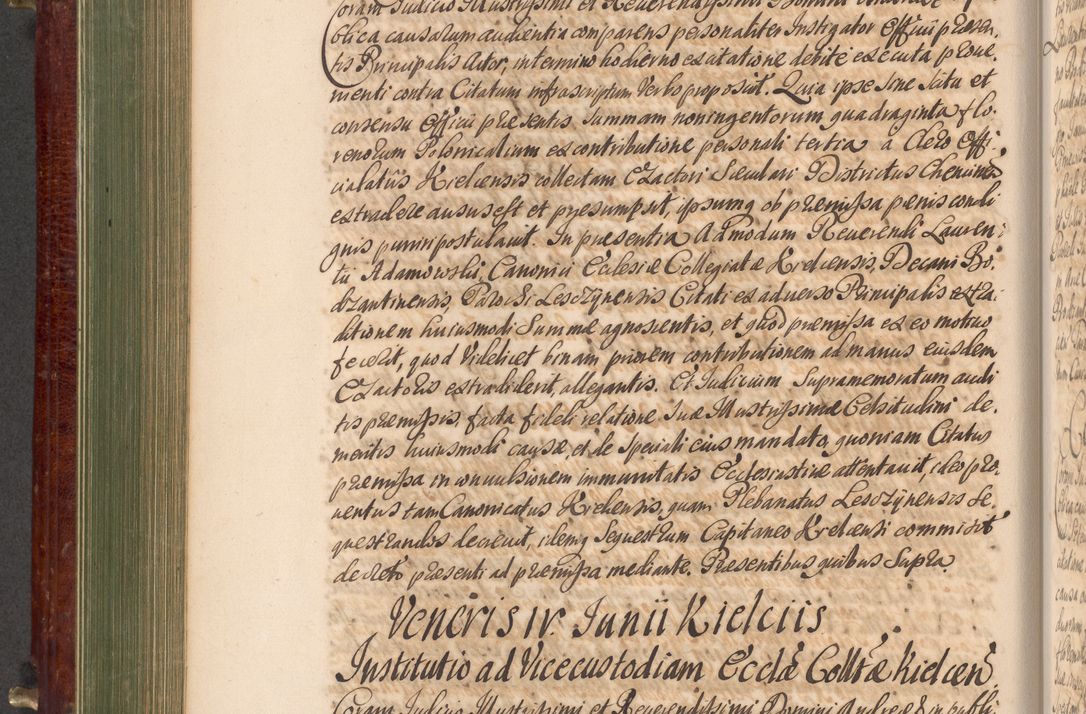 Coram Judicio Illustrissimi et Reverendissimi Domini
blica causarum audientia comparens personaliter Instigator Officii præsen
tis Principalis Actor, in termino hodierno ex citatione debite executa prove
nienti contra Citatum infrascriptum Verbo proposuit. Quia ipse sine scitu et
consensu Officii præsentis Summam noningentorum quadraginta flo
renorum Polonicalium ex contributione personali tertia a Clero Offi
cialatus Kielcensis collectam Exactori Sæculari Districtus Chencinen
extradere ausus est et præsumpsit, ipsumq ob præmissa pænis condi
gnis puniri postulavit. In præsentia Admodum Reverendi Lauren
tii Adamowski, Canonici Ecclesiæ Collegiatæ Kielcensis, Decani Bo
dzantinensis, Parochi Leszczynensis Citati ex adverso Principalis extra
ditionem huiusmodi Summæ agnoscentis, et quod præmissa ex eo motivo
fecerit, quod Videlicet binam priorem contributionem ad manus eiusdem
Exactoris extradiderit, allegantis. Et Judicium Supramemoratum audi
tis præmissis, facta fideli relatione Suæ Illustrissimæ Celsitudini de
meritis huiusmodi causæ, et de speciali eius mandato, quoniam Citatus
præmissa in convulsionem immunitatis Ecclesiasticæ attentavit, ideo pro
ventus tam Canonicatus Kielcensis, quam Plebanatus Leszczynensis se
questrandos decrevit, idemq Sequestrum Capitaneo Kielcensi commisit
decreto præsenti ad præmissa mediante. Præsentibus quibus Supra.
Veneris IV. Junii Kielciis
Institutio ad Vicecustodiam Eccłæ Collłæ Kielcen
Coram Judicio Illustrissimi et Reverendissimi Domini Andreæ &c in publi